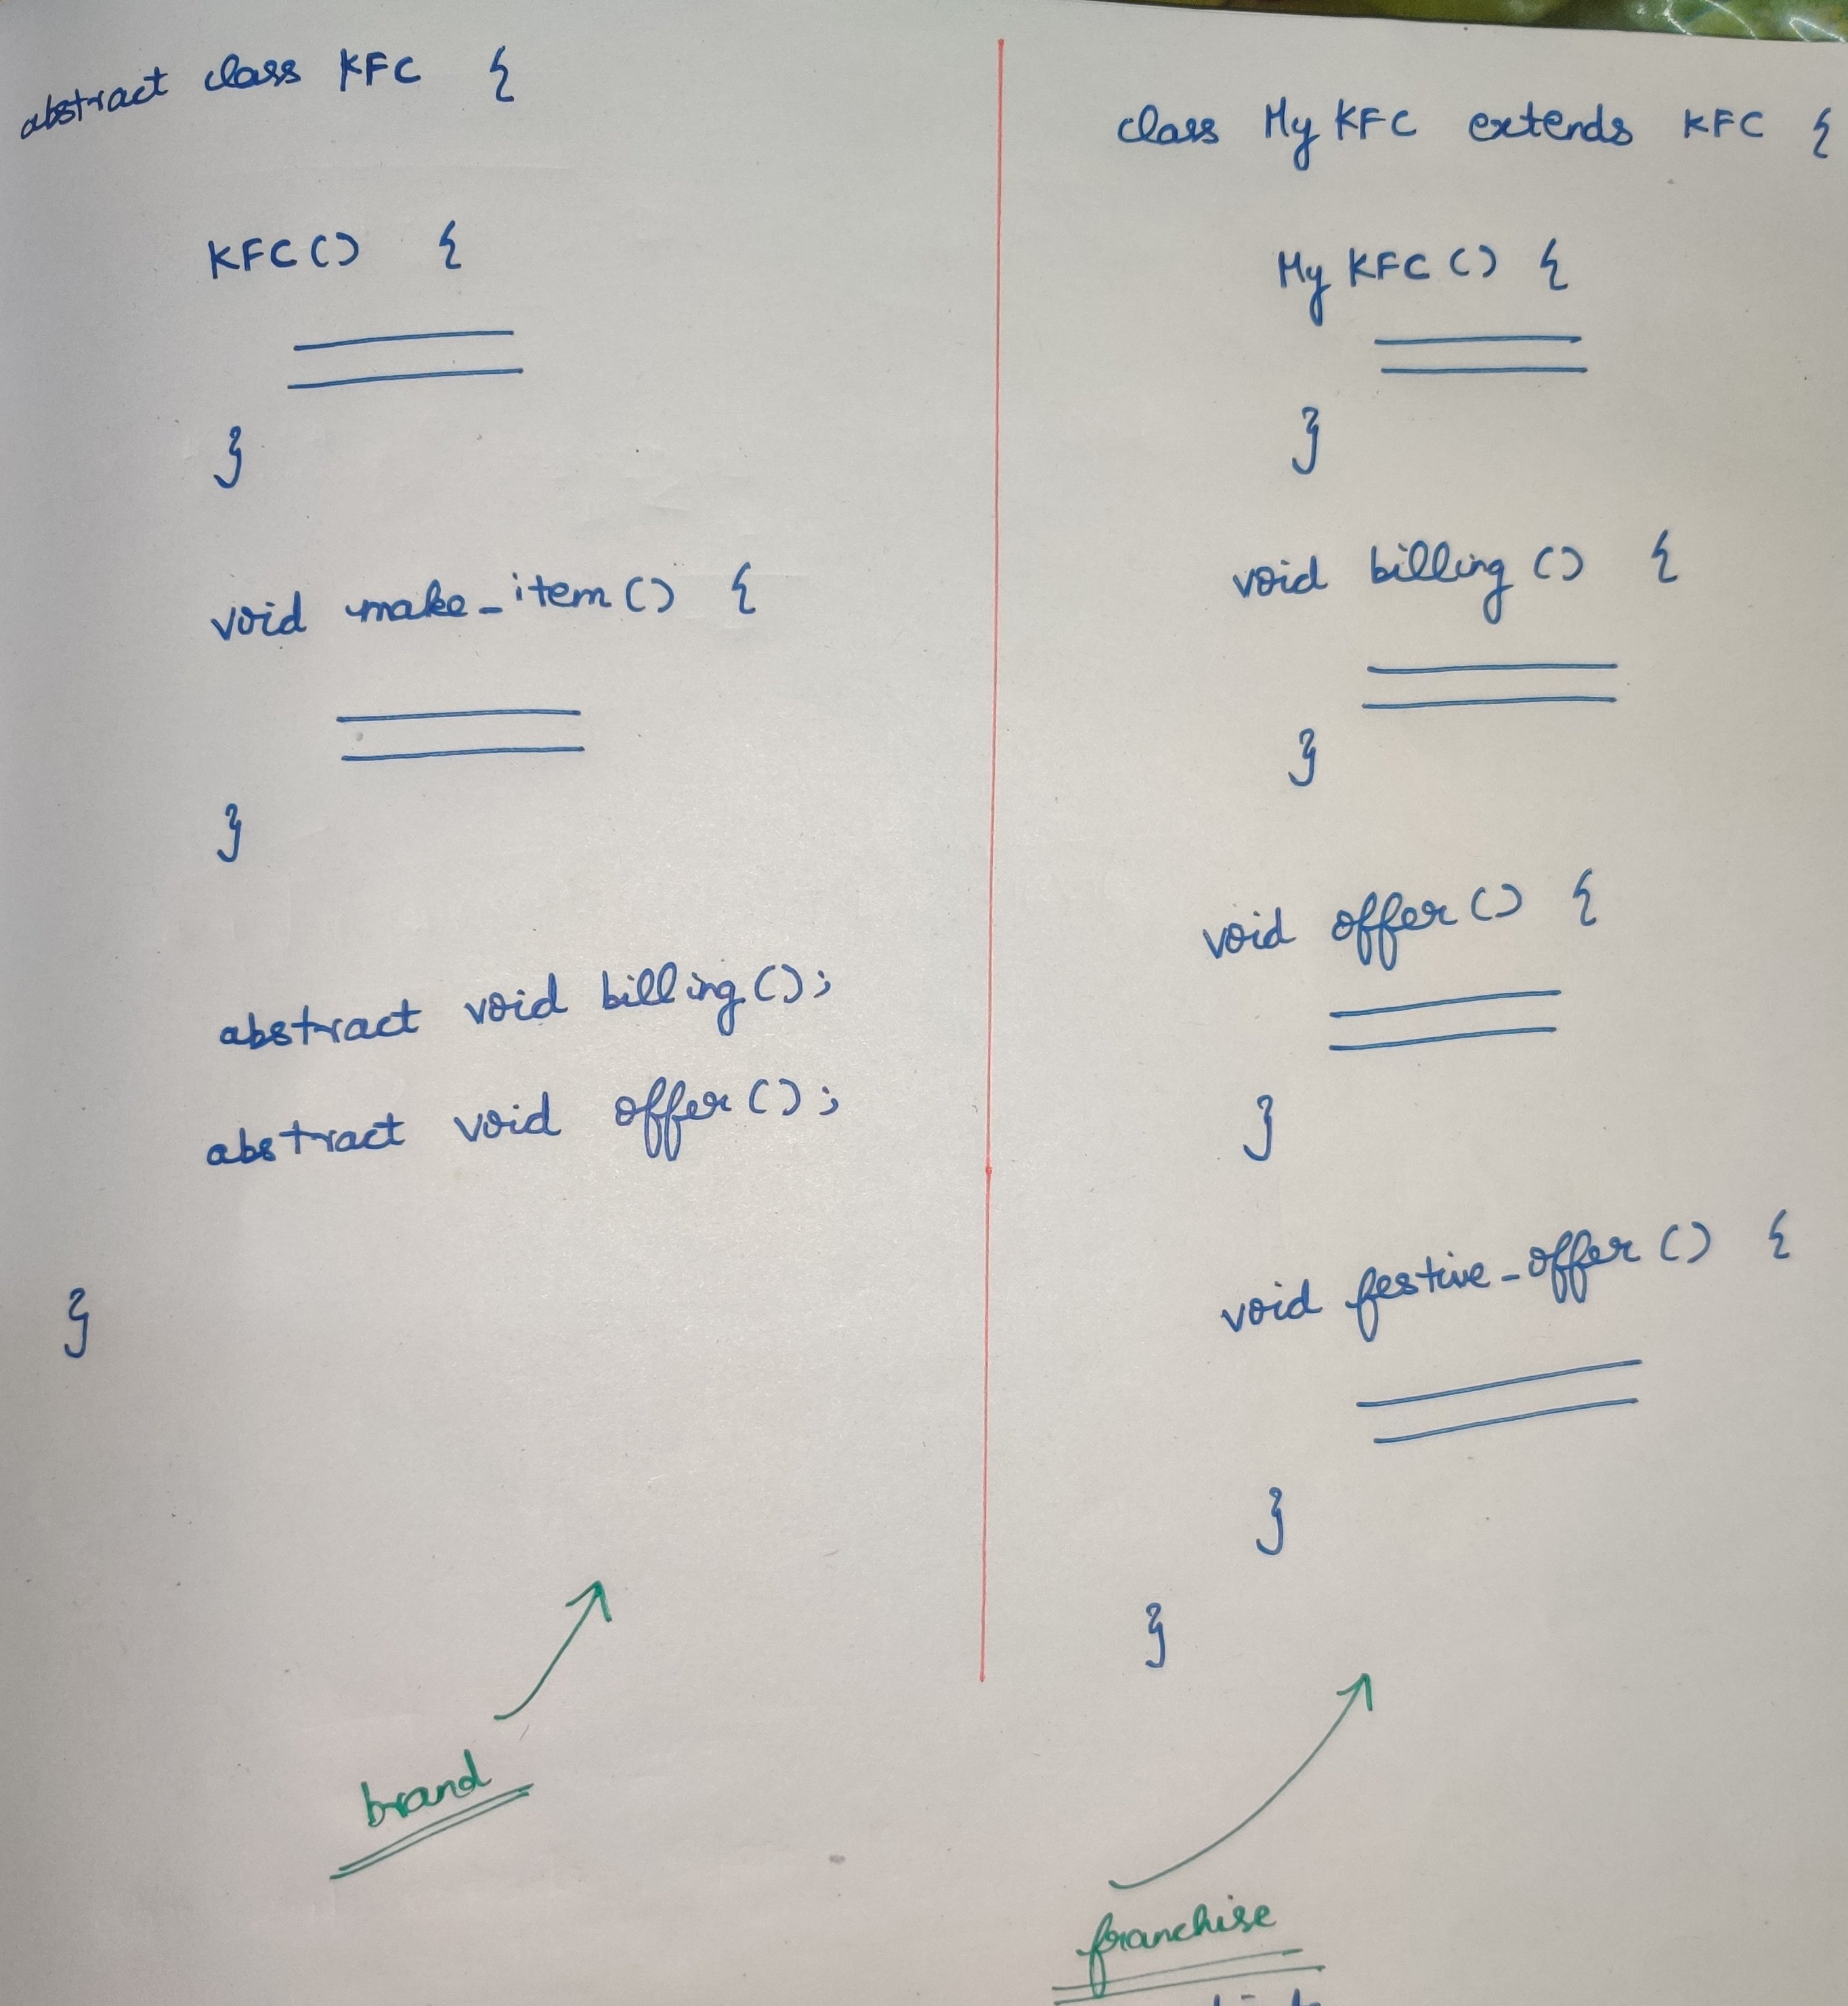 abstract class KFC {
KFC() {
}
void make_item() {
}
abstract void billing();
abstract void offer();
}
brand
class My KFC extends KFC {
My KFC() {
}
void billing() {
}
void offer() {
}
void festive_offer() {
}
}
franchise